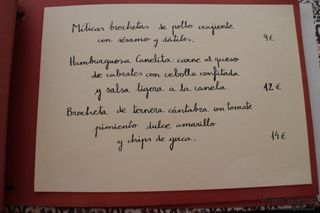 Míticas brochetas de pollo crujiente
con sésamo y dátiles.
9€
Hamburguesa Canelita: carne al queso
de cabrales con cebolla confitada
y salsa ligera a la canela.
12€
Brocheta de ternera cántabra con tomate
pimiento dulce amarillo
y chips de yuca.
14€